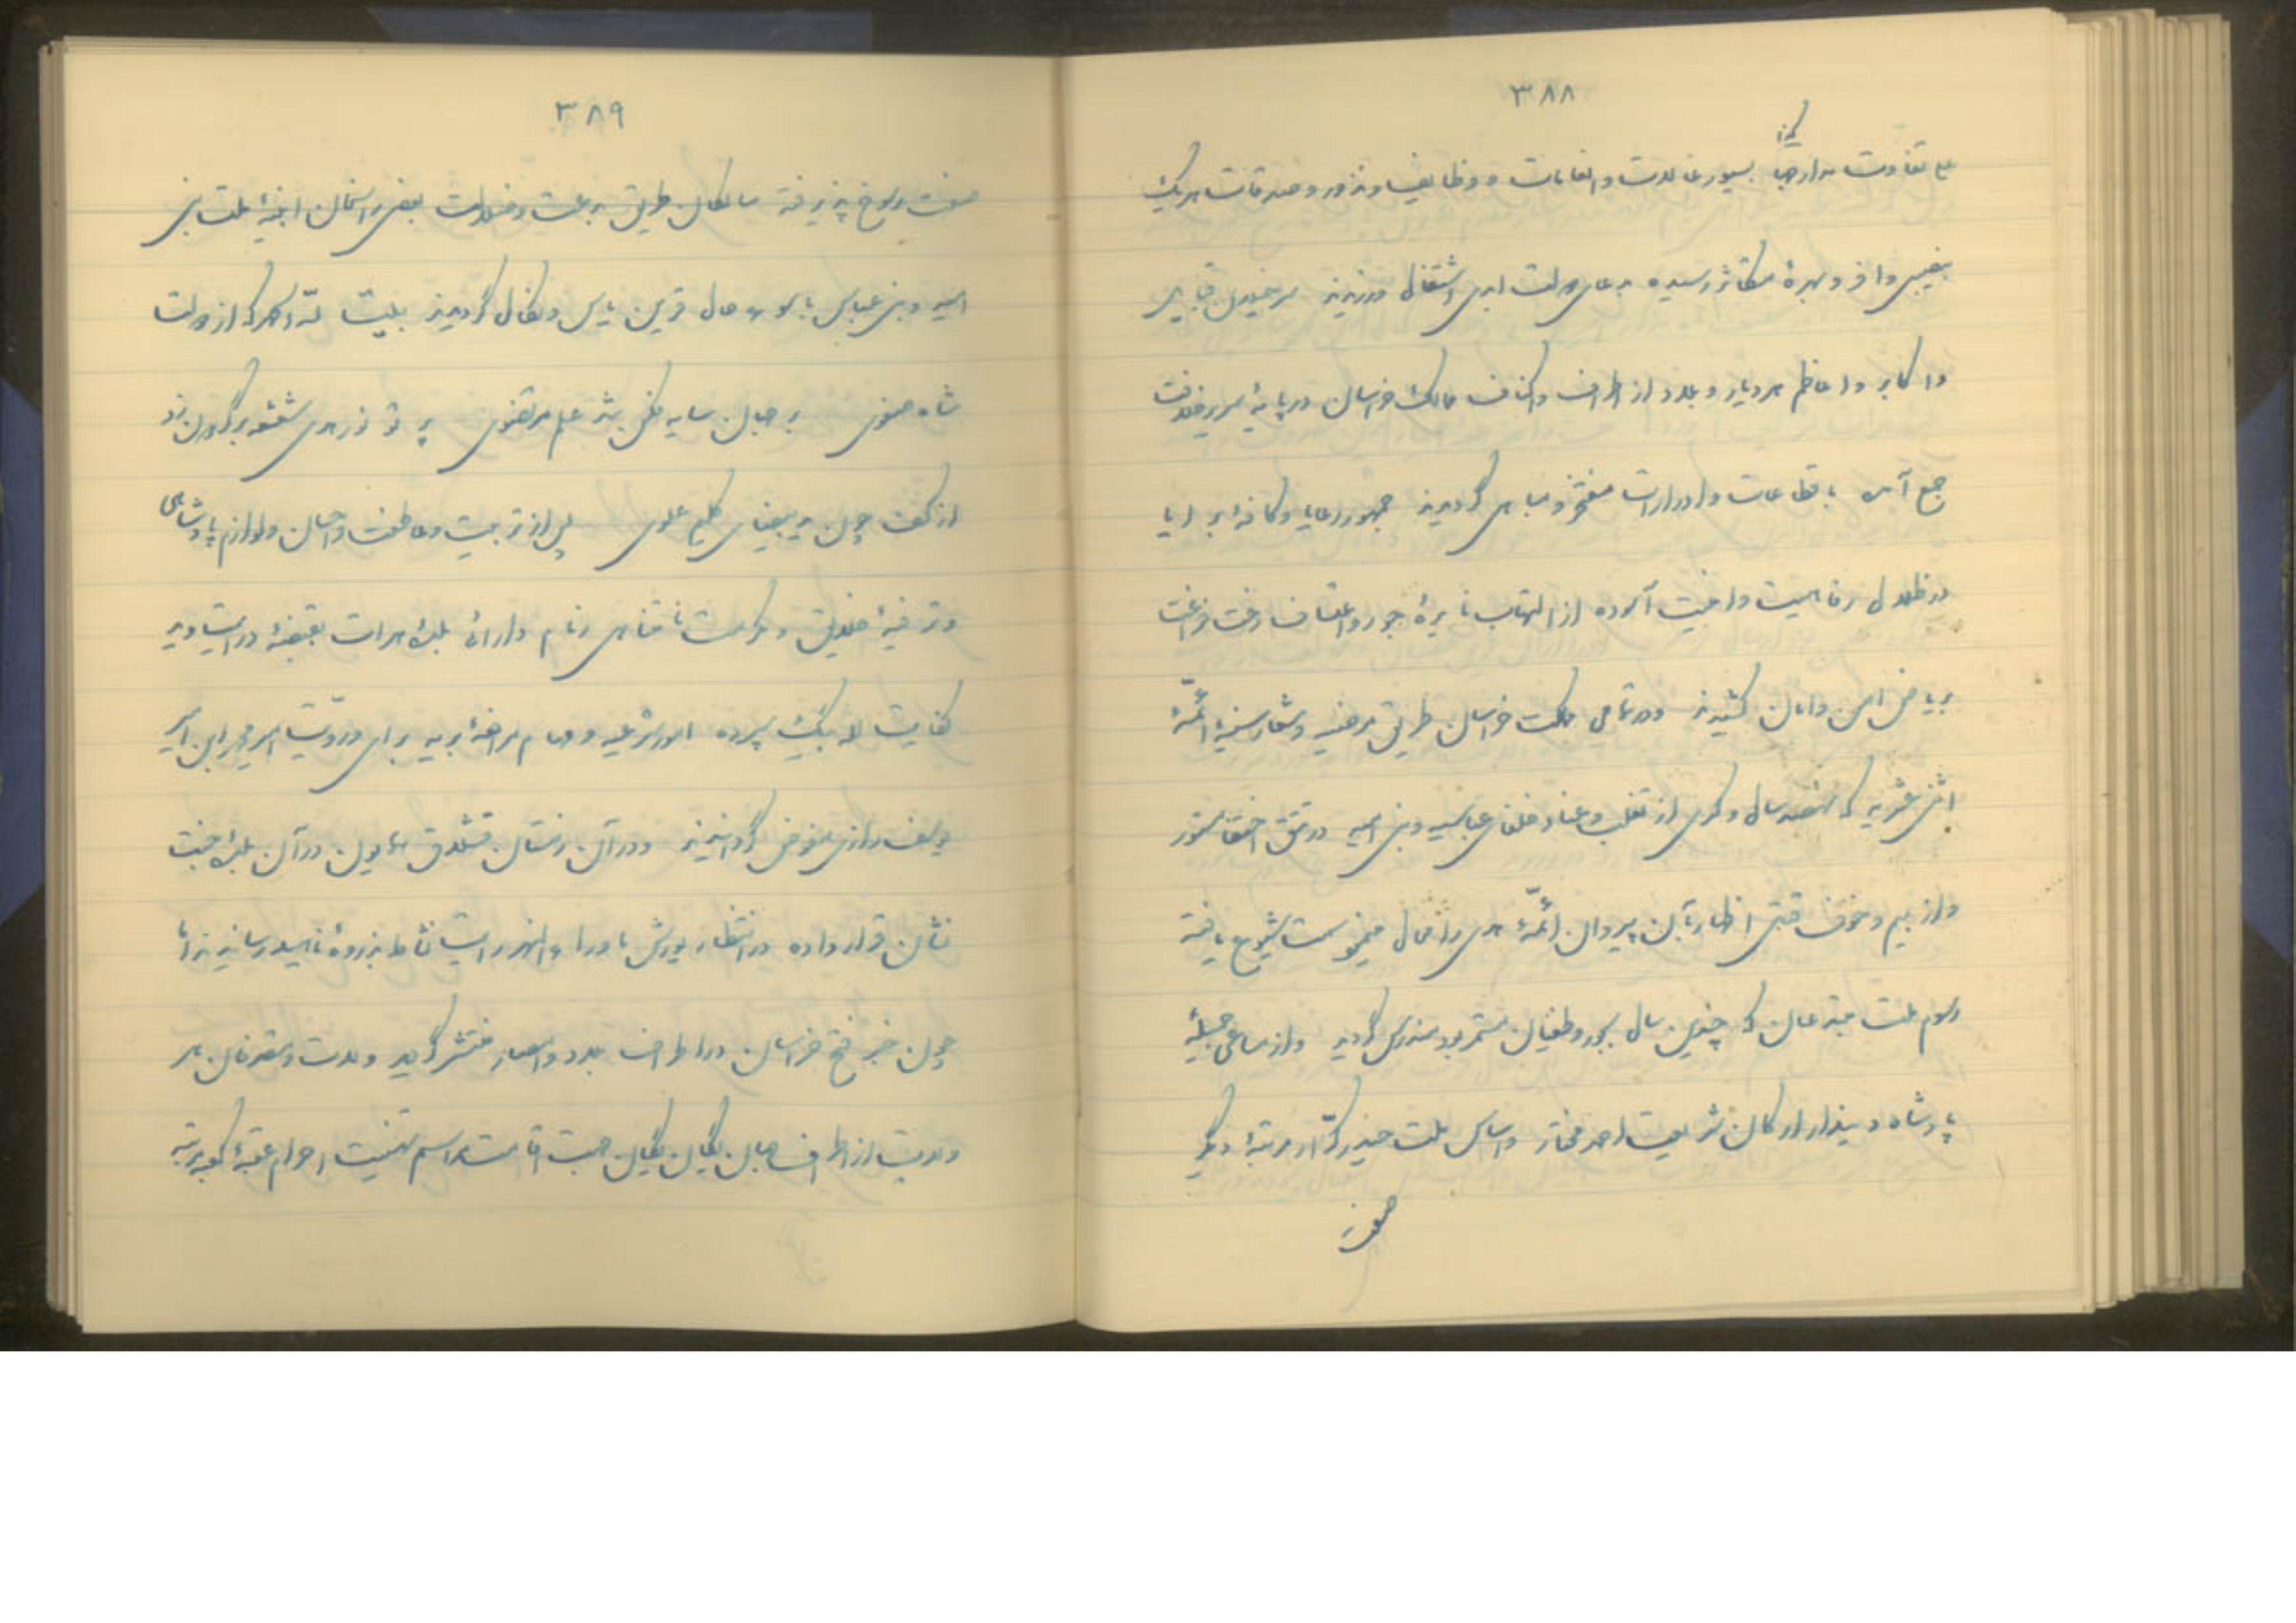 ۳۸۸
کذا
علی تفاوت مدارجها بسیورغالات و انعامات و وظایف و نذور و صدقات هر یک
بنصیبی وافر و بهرهٔ متکاثر رسیده بدعای دولت ابدی اشتغال ورزیدند سرخیلان قبایل
و اکابر و اعاظم هر دیار و بلاد از اطراف و اکناف ممالک خراسان در پایهٔ سریر خلافت
جمع آمده باقطاعات و ادرارات مفتخر و مباهی گردیدند جمهور رعایا و کافهٔ برایا
در ظلال رفاهیت و امنیت آسوده از التهاب نایرهٔ جور و اعتساف رخت فراغت
بریاض امن و امان کشیدند و در تمامی مملکت خراسان طریق مرضیه و شعار سنیهٔ ائمّهٔ
اثنی عشریه که نهصد سال و کسری از تغلب و عناد خلفای عباسیه و بنی امیه در تتق اختفا مستور
و از بیم و خوف قتل اظهار آن پیروان ائمّهٔ هدی را محال مینمود سمت شیوع یافته
رسوم ملت مبتدعان که چندین سال بجور و طغیان مستمر بود مندرس گردید و از مساعی جمیلهٔ
پادشاه دیندار ارکان شریعت احمد مختار و اساس ملت حیدر کرّار مرتبهٔ دیگر
صفت
۳۸۹
صفت رسوخ پذیرفته سالکان طریق بدعت و ضلالت یعنی راسخان ابنیهٔ ملت بنی
امیه و بنی عباس باسوء حال قرین یاس و نکال گردیدند بلیت للّه الحمد که از دولت
شاه صفوی بر جهان سایه فکن شد علم مرتضوی پرتو نور هدی شعشعه بر گردون زد
از کف چون ید بیضای کلیم علوی پس از تربیت و عاطفت و احسان و لوازم پادشاهی
و ترفیهٔ خلایق و مرحمت نامتناهی زمام دارائی بلدهٔ هرات بقبضهٔ درایت و ید
کفایت لله بیک سپرده امور شرعیه و مهام مرافعهٔ بریه برای و رویّت امیر محمد ابن امیر
یوسف رازی مفوض گردانیدند و در آن زمستان قشلاق همایون در آن بلدهٔ جنت
نشان قرار داده در انتظار یورش ماوراء النهر رایت نشاط بذروهٔ ناهید رسانیدند اما
چون خبر فتح خراسان در اطراف بلاد و امصار منتشر گردید ولات و متعرفان هر
ولایت از اطراف جهان یکان یکان جهت اقامت مراسم تهنیت احرام عتبهٔ کعبه مرتبه